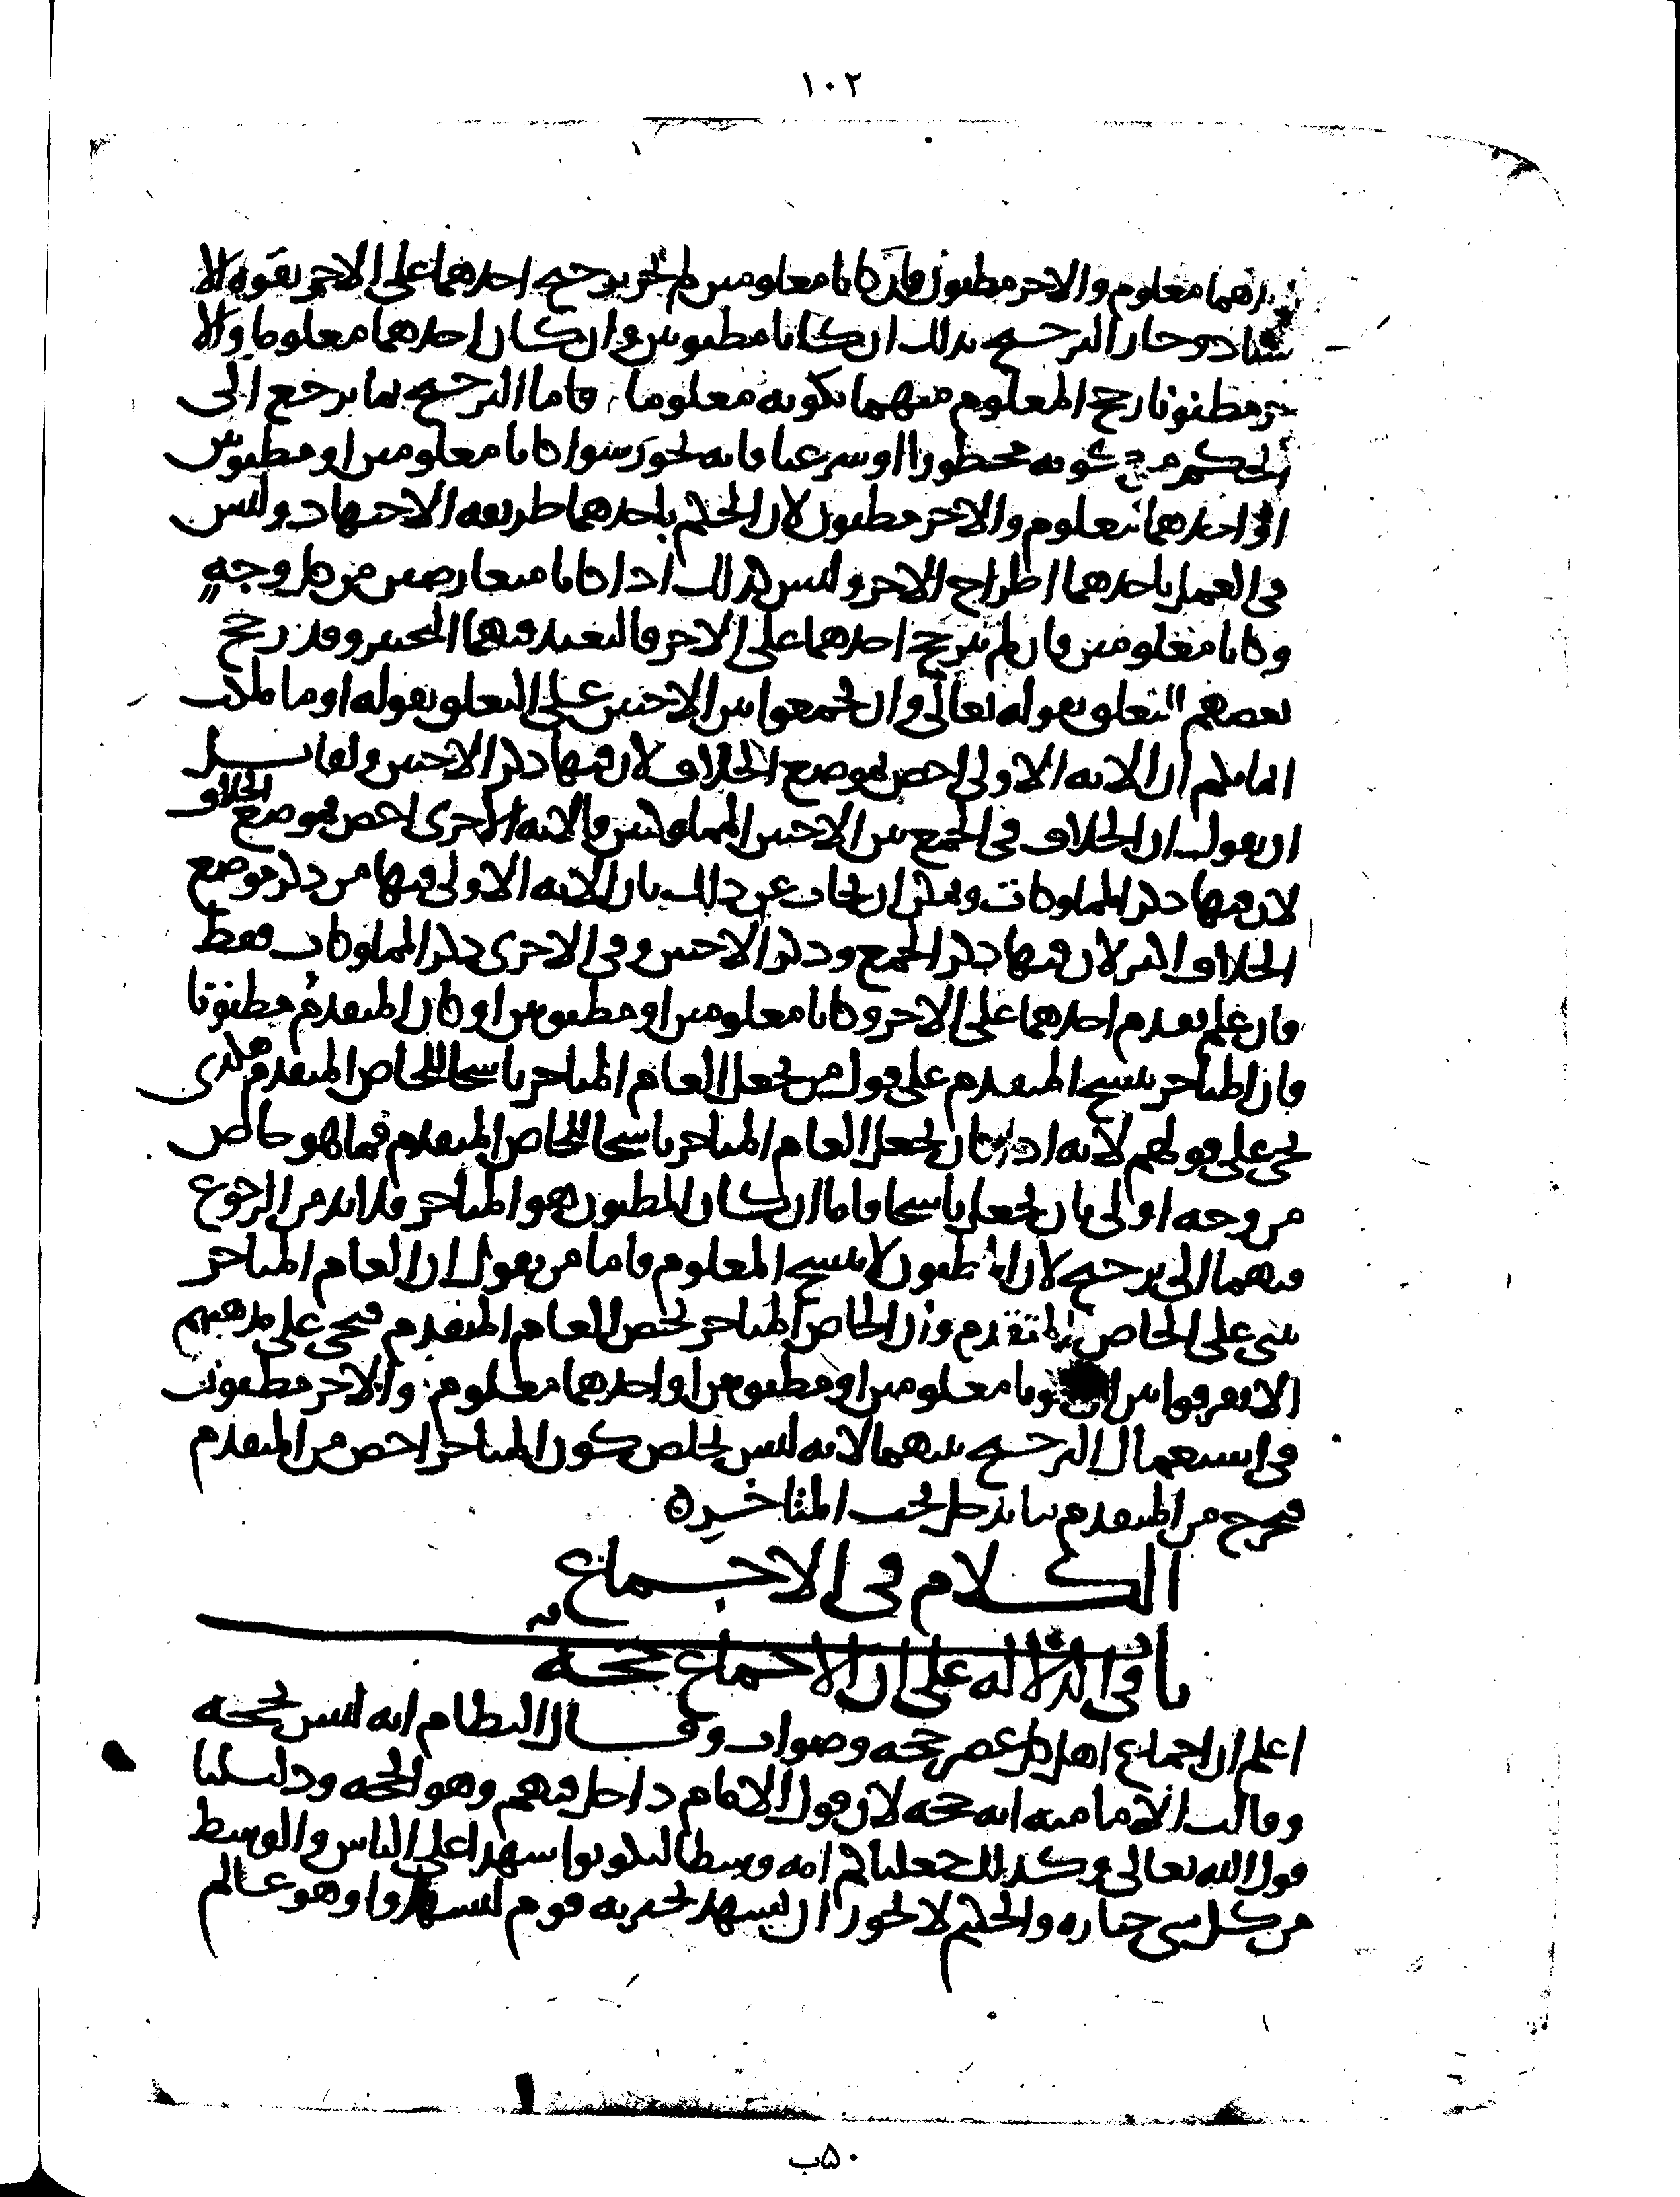 ١٠٢
احدهما معلوم والاخر مظنون فان كانا معلومين لم يجز ترجيح احدهما على الاخر بقوة الا
سناد وجاز الترجيح بذلك ان كانا مظنونين وان كان احدهما معلوما والا
خر مظنونا رجح المعلوم منهما بكونه معلوما فاما الترجيح بما يرجع الى
الحكم من كونه محظورا او شرعيا فانه يجوز سوا كانا معلومين او مظنونين
او احدهما معلوم والاخر مظنون لان الحكم باحدهما طريقه الاجتهاد وليس
فى العمل باحدهما اطراح الاخر وليس كذلك اذا كانا متعارضين من كل وجه
وكانا معلومين فان لم يترجح احدهما على الاخر فالتعبد فيهما التخيير وقد رجح
بعضهم التعلق بقوله تعالى وان تجمعوا بين الاختين على التعلق بقوله او ما ملكت
ايمانكم ان الاية الاولى اخص بموضع الخلاف لان فيها ذكر الاختين ولقايل
ان يقول ان الخلاف فى الجمع بين الاختين المملوكتين فالاية الاخرى اخص بموضع الخلاف
لان فيها ذكر المملوكات ويمكن ان يجاب عن ذلك بان الاية الاولى فيها من ذكر موضع
الخلاف اكثر لان فيها ذكر الجمع وذكر الاختين وفى الاخرى ذكر المملوكات فقط
فان علم تقدم احدهما على الاخر وكانا معلومين او مظنونين او كان المتقدم مظنونا
فان المتاخر ينسخ المتقدم على قول من يجعل العام المتاخر ناسخا للخاص المتقدم هكذى
يجى على قولهم لانه اذا كان يجعل العام المتاخر ناسخا للخاص المتقدم فما هو خاص
من وجه اولى بان يجعل ناسخا فاما ان كان المظنون هو المتاخر فلا بد من الرجوع
فيهما الى ترجيح لان المظنون لا ينسخ المعلوم فاما من يقول ان العام المتاخر
يبنى على الخاص المتقدم وان الخاص المتاخر يخص العام المتقدم فيجى على مذهبهم
الا يفرقوا بين ان يكونا معلومين او مظنونين او احدهما معلوم والاخر مظنون
فى استعمال الترجيح بينهما لانه ليس يخلص كون المتاخر اخص من المتقدم
فيخرج من المتقدم ما دخل تحت المتاخر ه
الكلام فى الاجماع
باب فى الدلالة على ان الاجماع حجة
اعلم ان اجماع اهل كل عصر حجة وصواب وقال النظام انه ليس بحجة
وقالت الامامية انه حجة لان قول الامام داخل فيهم وهو الحجة ودليلنا
قول الله تعالى وكذلك جعلناكم امة وسطا لتكونوا شهدا على الناس والوسط
من كل شى خياره والحكيم لا يجوز ان يشهد بخيرية قوم ليشهدوا وهو عالم
٥٠ب